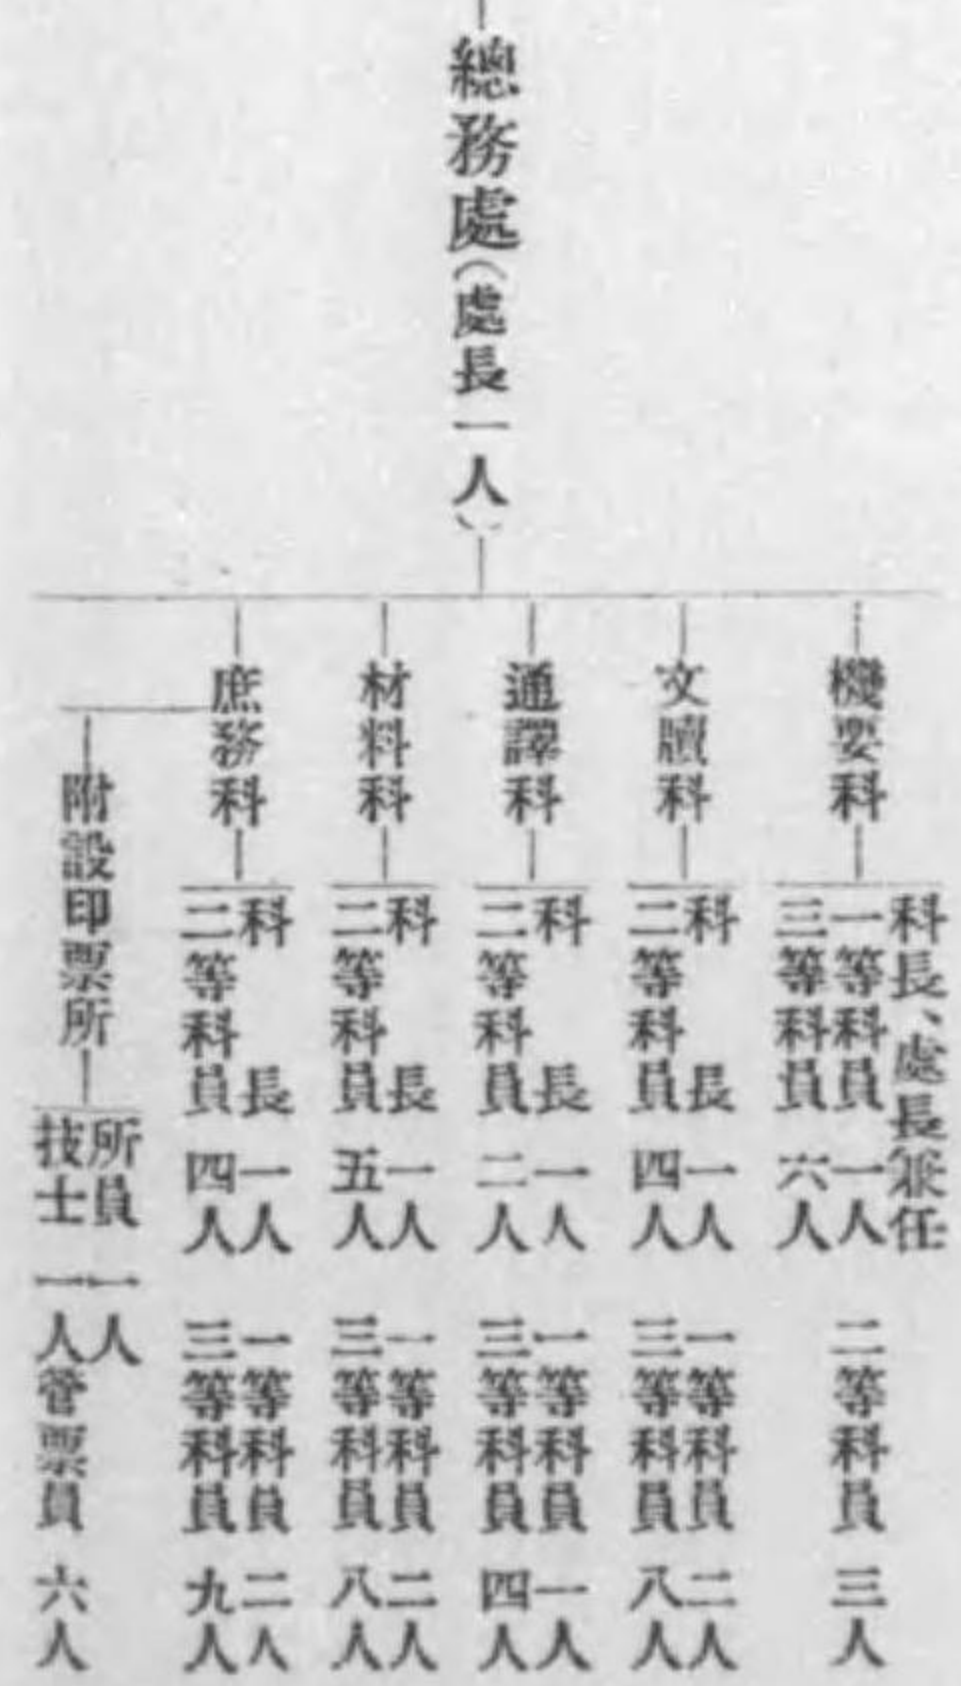 總務處(處長一人)
機要科
科長、處長兼任
一等科員一人
二等科員三人
三等科員六人
文牘科
科長一人
一等科員二人
二等科員四人
三等科員八人
通譯科
科長一人
一等科員一人
二等科員二人
三等科員四人
材料科
科長一人
一等科員二人
二等科員五人
三等科員八人
庶務科
科長一人
一等科員二人
二等科員四人
三等科員九人
附設印票所
所員一人
技士一人管票員六人